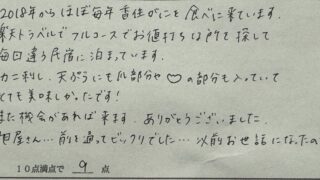 2018年からほぼ毎年香住がにを食べに来ています。
楽天トラベルでフルコースでお値打ちな所を探して
毎回違う民宿に泊まっています。
カニ刺し、天ぷらにも爪部分や♡の部分も入っていて
とても美味しかったです!
また機会があれば来ます。ありがとうございました。
屋さん…前を通ってビックリでした…以前お世話になったの
10点満点で 9 点